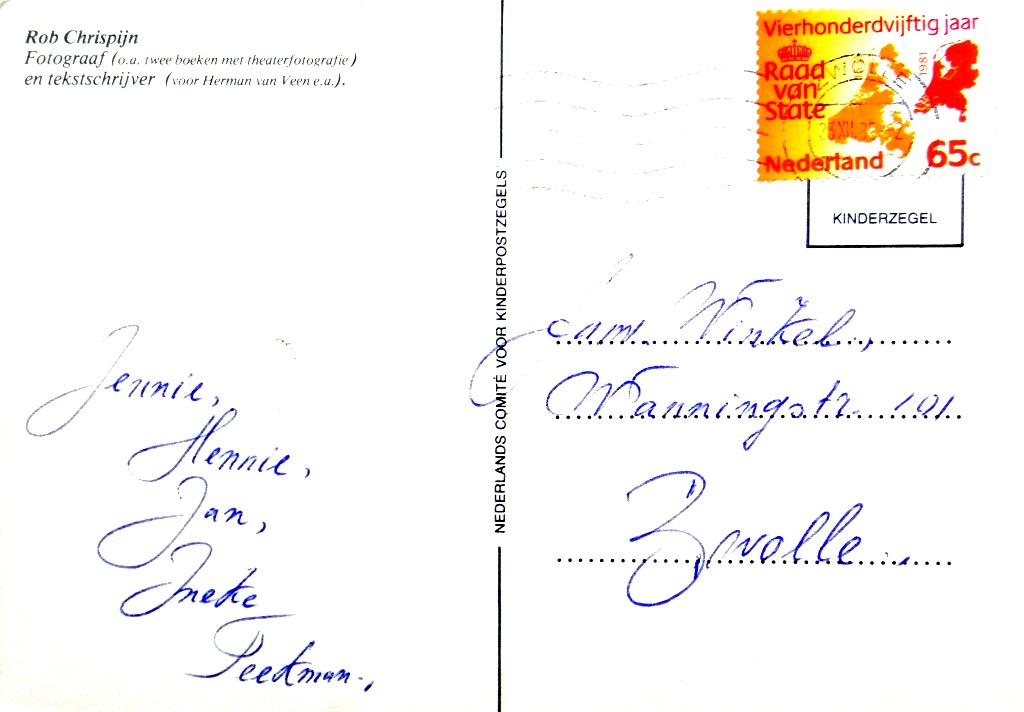 Rob Chrispijn
Fotograaf (o.a. twee boeken met theaterfotografie)
en tekstschrijver (voor Herman van Veen e.a.).
Jennie,
Hennie,
Jan,
Ineke
Peekman.,
NEDERLANDS COMITÉ VOOR KINDERPOSTZEGELS
Vierhonderdvijftig jaar
Raad
van
State
1981
Nederland
65c
KINDERZEGEL
Fam. Winkel,
Wanningstr. 101.
Zwolle.